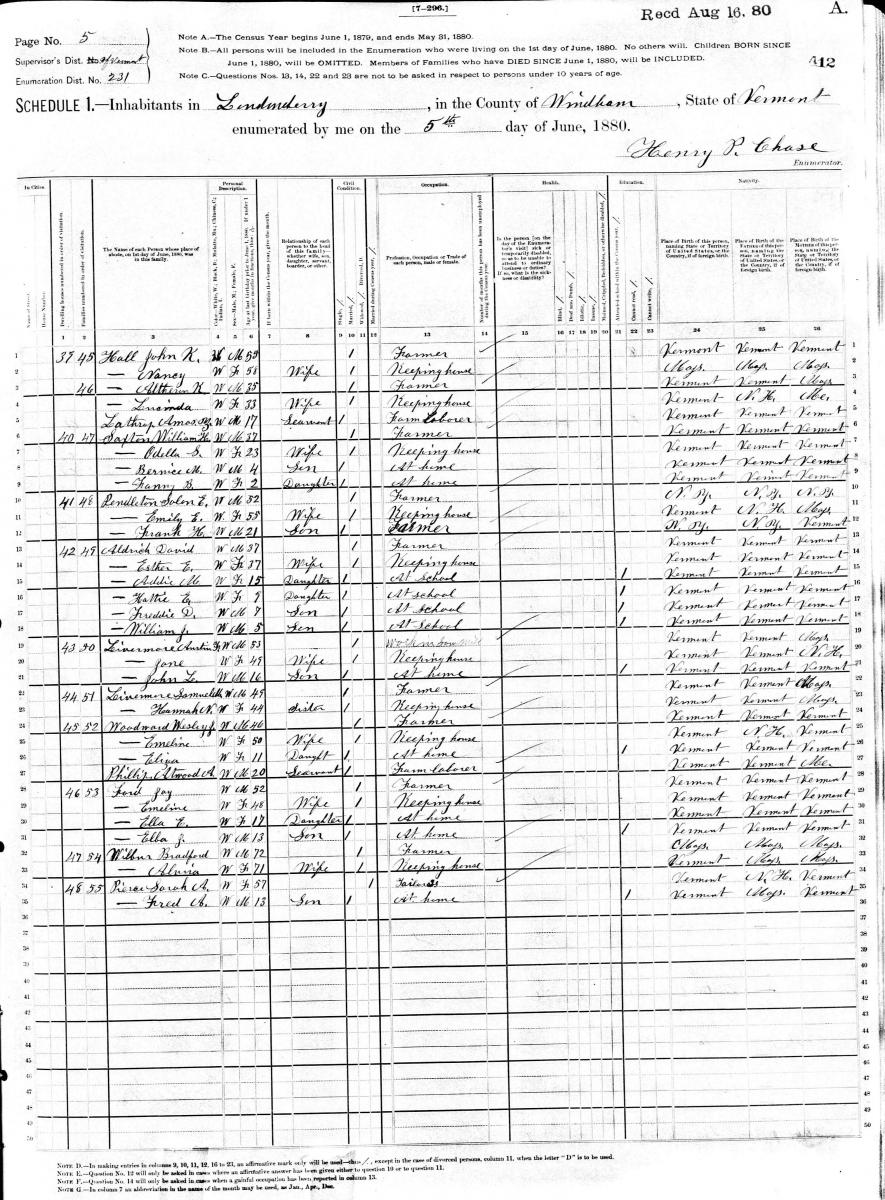 [7-296.]
Recd Aug 16, 80 A.
Page No. 5
Supervisor's Dist. No. of Vermont
Enumeration Dist. No. 231
Note A.—The Census Year begins June 1, 1879, and ends May 31, 1880.
Note B.—All persons will be included in the Enumeration who were living on the 1st day of June, 1880. No others will. Children BORN SINCE
June 1, 1880, will be OMITTED. Members of Families who have DIED SINCE June 1, 1880, will be INCLUDED.
Note C.—Questions Nos. 13, 14, 22 and 23 are not to be asked in respect to persons under 10 years of age.
412
SCHEDULE 1.—Inhabitants in Londonderry, in the County of Windham, State of Vermont
enumerated by me on the 5th day of June, 1880.
Henry P. Chase
Enumerator.
In Cities. Personal Description. Civil Condition. Occupation. Health. Education. Nativity.
The Name of each Person whose place of abode, on 1st day of June, 1880, was in this family.
Relationship of each person to the head of this family—whether wife, son, daughter, servant, boarder, or other.
Profession, Occupation or Trade of each person, male or female.
1 2 3 4 5 6 7 8 9 10 11 12 13 14 15 16 17 18 19 20 21 22 23 24 25 26
1 39 45 Hall John K. W M 59 / Farmer Vermont Vermont Vermont 1
2 — Nancy W F 58 Wife / Keeping house Mass. Mass. Mass. 2
3 46 — K W M 35 / Farmer Vermont Vermont Mass 3
4 — Lucinda W F 33 Wife / Keeping house Vermont N. H. Me. 4
5 Lathrop Amos W M 17 Searvent / Farm Laborer Vermont Vermont Vermont 5
6 40 47 Sapton William H. W M 37 / Farmer Vermont Vermont Vermont 6
7 — Odella S. W F 23 Wife / Keeping house Vermont Vermont Vermont 7
8 — Bernice M. W M 4 Son / At home Vermont Vermont Vermont 8
9 — Fanny W F 2 Daughter / At home Vermont Vermont Vermont 9
10 41 48 Pendleton Solon E. W M 52 / Farmer N. Y. N. Y. N. Y. 10
11 — Emily E. W F 55 Wife / Keeping house Vermont N. H. Mass. 11
12 — Frank H. W M 21 Son / Farmer N. Y. N. Y. Vermont 12
13 42 49 Aldrich David W M 37 / Farmer Vermont Vermont Vermont 13
14 — Esther E. W F 37 Wife / Keeping house Vermont Vermont Vermont 14
15 — Addie M W F 15 Daughter / At School / Vermont Vermont Vermont 15
16 — Hattie E. W F 9 Daughter / At school / Vermont Vermont Vermont 16
17 — Freddie D. W M 7 Son / At School / Vermont Vermont Vermont 17
18 — William J. W M 5 Son / At School / Vermont Vermont Vermont 18
19 43 50 Livermore Austin W M 53 / Vermont Vermont Mass. 19
20 — Jane W F 49 Wife / Keeping house Vermont Vermont N. H. 20
21 — John L. W M 16 Son / At home / Vermont Vermont Vermont 21
22 44 51 Livermore Samuel W M 49 / Farmer Vermont Vermont Mass. 22
23 — Hannah N. W F 44 Sister / Keeping house Vermont Vermont Mass. 23
24 45 52 Woodward Wesley J. W M 46 / Farmer Vermont Vermont Vermont 24
25 — Emeline W F 50 Wife / Keeping house Vermont N. H. Vermont 25
26 — Eliza W F 11 Daught / At home / Vermont Vermont Vermont 26
27 Phillip Atwood A. W M 20 Searvent / Farm laborer Vermont Vermont Me. 27
28 46 53 Ford Jay W M 52 / Farmer Vermont Vermont Vermont 28
29 — Emeline W F 48 Wife / Keeping house Vermont Vermont Vermont 29
30 — Ella E. W F 17 Daughter / At home Vermont Vermont Vermont 30
31 — Elba J. W M 13 Son / At home / Vermont Vermont Vermont 31
32 47 54 Wilbur Bradford W M 72 / Farmer Mass. Mass. Mass. 32
33 — Alvira W F 71 Wife / Keeping house Vermont Mass. Mass. 33
34 48 55 Pierce Sarah A. W F 57 / Tailoress Vermont N. H. Vermont 34
35 — Fred A. W M 13 Son / At home / Vermont Mass. Vermont 35
36 36
37 37
38 38
39 39
40 40
41 41
42 42
43 43
44 44
45 45
46 46
47 47
48 48
49 49
50 50
Note D.—In making entries in columns 9, 10, 11, 12, 16 to 23, an affirmative mark only will be used—thus /, except in the case of divorced persons, column 11, when the letter "D" is to be used.
Note E.—Question No. 12 will only be asked in cases where an affirmative answer has been given either to question 10 or to question 11.
Note F.—Question No. 14 will only be asked in cases when a gainful occupation has been reported in column 13.
Note G.—In column 7 an abbreviation in the name of the month may be used, as Jan., Apr., Dec.